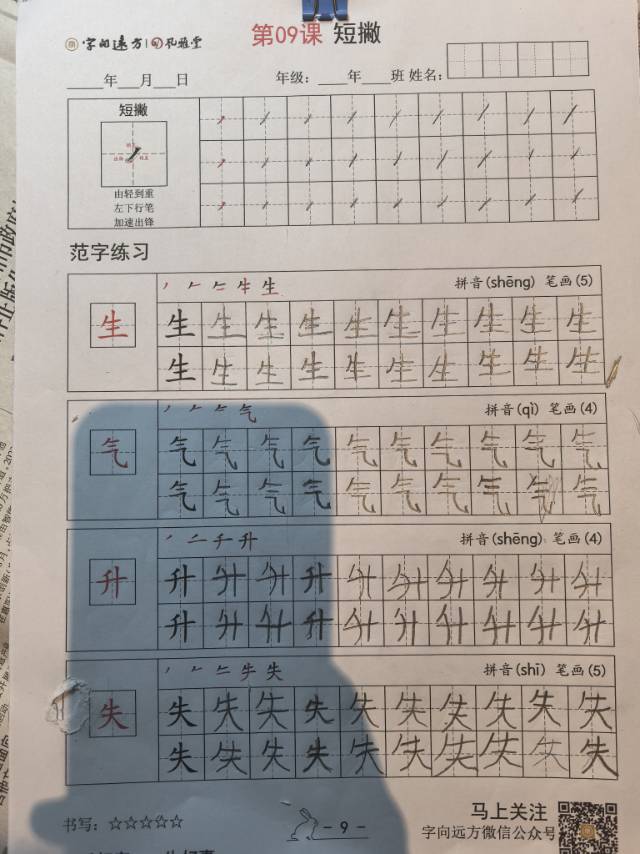 字向远方 风雅堂
第09课 短撇
年 月 日 年级: 年 班 姓名:
短撇
由轻到重
左下行笔
加速出锋
范字练习
生 拼音(shēng) 笔画(5)
生 生 生 生 生 生 生 生 生 生
生 生 生 生 生 生 生 生 生 生
气 拼音(qì) 笔画(4)
气 气 气 气 气 气 气 气 气 气
气 气 气 气 气 气 气 气 气 气
升 拼音(shēng) 笔画(4)
升 升 升 升 升 升 升 升 升 升
升 升 升 升 升 升 升 升 升 升
失 拼音(shī) 笔画(5)
失 失 失 失 失 失 失 失 失 失
失 失 失 失 失 失 失 失 失 失
书写: ☆☆☆☆☆
- 9 -
马上关注
字向远方微信公众号